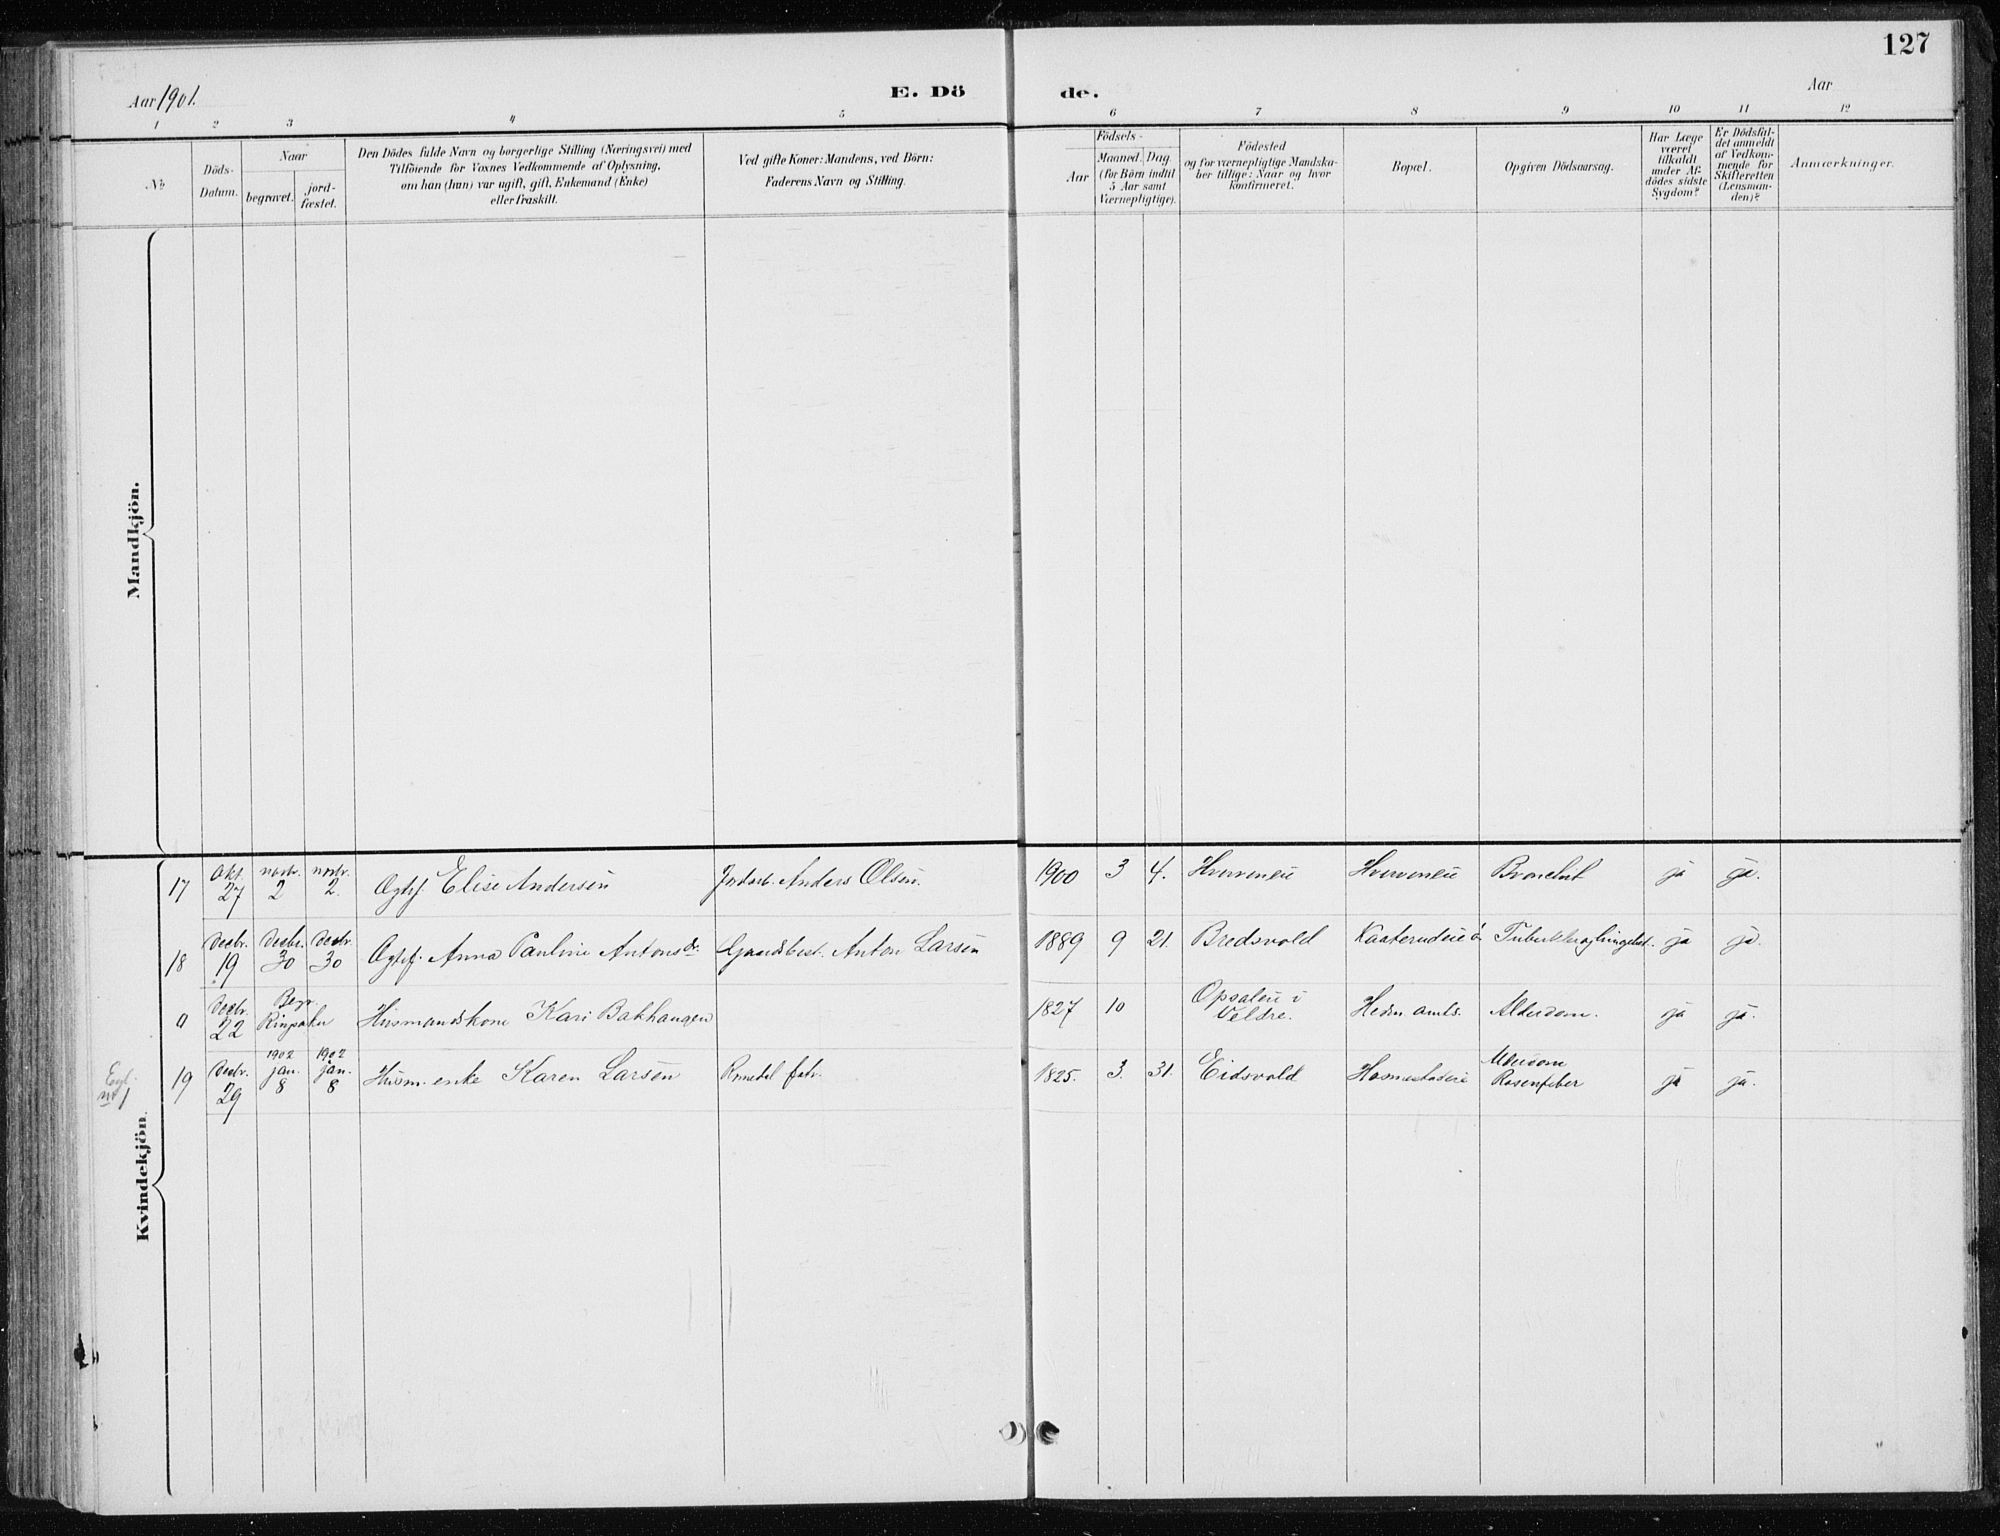 127
Aar 1901.
E. Dö
de.
Aar
1 2 3 4 5 6 7 8 9 10 11 12
No
Döds-
Datum.
Naar
begravet.
jord-
fæstet.
Den Dödes fulde Navn og borgerlige Stilling (Næringsvei) med
Tilföiende for Voxnes Vedkommende af Oplysning,
om han (hun) var ugift, gift, Enkemand (Enke)
eller fraskilt.
Ved gifte Koner: Mandens, ved Börn:
Faderens Navn og Stilling.
Födsels-
Aar
Maaned. Dag.
(for Börn indtil
5 Aar samt
Værnepligtige).
Födested
og for værnepligtige Mandska-
ber tillige: Naar og hvor
konfirmeret.
Bopæl.
Opgiven Dödsaarsag.
Har Læge
været
tilkaldt
under Af-
dödes sidste
Sygdom?
Er Dödsfal-
det anmeldt
af Vedkom-
mende for
Skifteretten
(Lensman-
den)?
Anmærkninger.
Mandkjön.
Kvindekjön.
17 Okt. 27 novbr. 2 novbr. 2. Ægtf. Elise Andersen Jordarb. Anders Olsen. 1900 3 4. ja ja.
18 Decbr. 19 Decbr. 30 Decbr. 30 Ægtef. Anna Pauline Antonsdr. Gaardbest. Anton Larsen 1889 9 21. Bredsvold ja ja.
Decbr. 22 Begr. Ringsaker Husmandskone Kari Bakhaugen 1827 10 Opsaleie i Veldre. Hedm. amts. Alderdom. ja ja.
19 Decbr. 29 1902 jan. 8 1902 jan. 8 Husm. enke Karen Larsen 1825. 3. 31. Eidsvold Alderdom Rosenfeber ja ja.